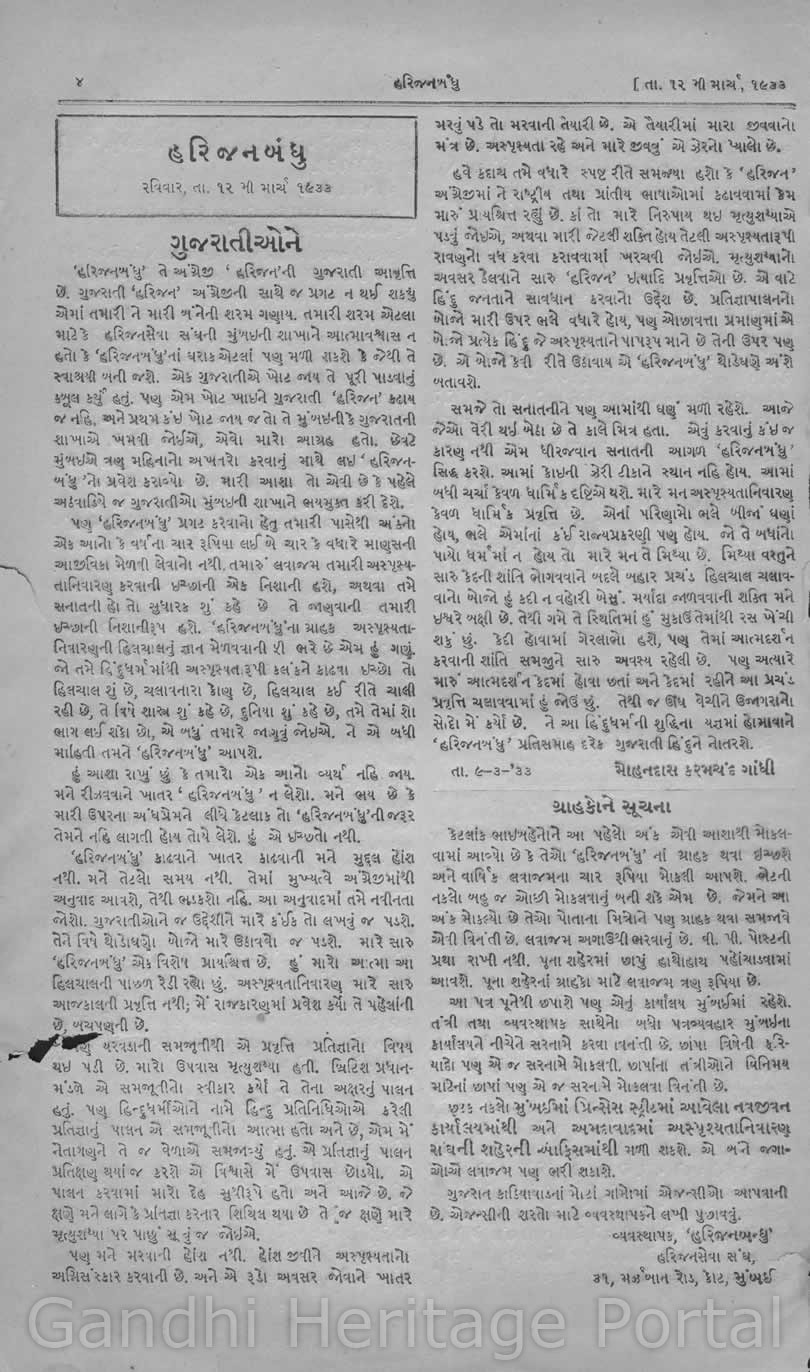 ૪
હરિજનબંધુ
[ તા. ૧૨ મી માર્ચ, ૧૯૩૩
હરિજનબંધુ
રવિવાર, તા. ૧૨ મી માર્ચ ૧૯૩૩
ગુજરાતીઓને
‘હરિજનબંધુ’ તે અંગ્રેજી ‘ હરિજન’ની ગુજરાતી આવૃત્તિ
છે. ગુજરાતી ‘હરિજન’ અંગ્રેજીની સાથે જ પ્રગટ ન થઈ શકયું
એમાં તમારી ને મારી બંનેની શરમ ગણાય. તમારી શરમ એટલા
માટે કે હરિજનસેવા સંઘની મુંબઇની શાખાને આત્મવિશ્વાસ ન
હતો કે ‘હરિજનબંધુ’નાં ઘરાક એટલાં પણ મળી શકશે કે જેથી તે
સ્વાશ્રયી બની જશે. એક ગુજરાતીએ ખોટ જાય તે પૂરી પાડવાનું
કબૂલ કર્યું હતું. પણ એમ ખોટ ખાઇને ગુજરાતી ‘હરિજન’ કઢાય
જ નહિ, અને પ્રથમ કંઇ ખોટ જાય જ તો તે મુંબઇની કે ગુજરાતની
શાખાએ ખમવી જોઈએ, એવો મારો આગ્રહ હતો. છેવટે
મુંબઇએ ત્રણ મહિનાનો અખતરો કરવાનું માથે લઇ ‘ હરિજન-
બંધુ ’નો પ્રવેશ કરાવ્યો છે. મારી આશા તો એવી છે કે પહેલે
અઠવાડિયે જ ગુજરાતીઓ મુંબઇની શાખાને ભયમુક્ત કરી દેશે.
પણ ‘હરિજનબંધુ’ પ્રગટ કરવાનો હેતુ તમારી પાસેથી અંકનો
એક આનો કે વર્ષના ચાર રૂપિયા લઈ બે ચાર કે વધારે માણસની
આજીવિકા મેળવી લેવાનો નથી. તમારું લવાજમ તમારી અસ્પૃશ્ય-
તાનિવારણ કરવાની ઇચ્છાની એક નિશાની હશે, અથવા તમે
સનાતની હો તો સુધારક શું કહે છે તે જાણવાની તમારી
ઇચ્છાની નિશાનીરૂપ હશે. ‘હરિજનબંધુ’ના ગ્રાહક અસ્પૃશ્યતા-
નિવારણની હિલચાલનું જ્ઞાન મેળવવાની ફી ભરે છે એમ હું ગણું.
જો તમે હિંદુધર્મમાંથી અસ્પૃશ્યતારૂપી કલંકને કાઢવા ઇચ્છો તો
હિલચાલ શું છે, ચલાવનારા કોણ છે, હિલચાલ કઈ રીતે ચાલી
રહી છે, તે વિષે શાસ્ત્ર શું કહે છે, દુનિયા શું કહે છે, તમે તેમાં શો
ભાગ લઈ શકો છો, એ બધું તમારે જાણવું જોઇએ. ને એ બધી
માહિતી તમને ‘હરિજનબંધુ’ આપશે.
હું આશા રાખું છું કે તમારો એક આનો વ્યર્થ નહિ જાય.
મને રીઝવવાને ખાતર ‘ હરિજનબંધુ ’ ન લેશો. મને ભય છે કે
મારી ઉપરના અંધપ્રેમને લીધે કેટલાક તો ‘હરિજનબંધુ’ની જરૂર
તેમને નહિ લાગતી હોય તોયે લેશે. હું એ ઇચ્છતો નથી.
‘હરિજનબંધુ’ કાઢવાને ખાતર કાઢવાની મને મુદ્દલ હોંશ
નથી. મને તેટલો સમય નથી. તેમાં મુખ્યત્વે અંગ્રેજીમાંથી
અનુવાદ આવશે, તેથી ભડકશો નહિ. આ અનુવાદમાં તમે નવીનતા
જોશો. ગુજરાતીઓને જ ઉદ્દેશીને મારે કંઈક તો લખવું જ પડશે.
તેને વિષે થોડોઘણો બોજો મારે ઉઠાવવો જ પડશે. મારે સારુ
‘હરિજનબંધુ’ એક વિશેષ પ્રાયશ્ચિત્ત છે. હું મારો આત્મા આ
હિલચાલની પાછળ રેડી રહ્યો છું. અસ્પૃશ્યતાનિવારણ મારે સારુ
આજકાલની પ્રવૃત્તિ નથી; મેં રાજકારણમાં પ્રવેશ કર્યો તે પહેલાંની
છે, બચપણની છે.
યરવડાની સમજૂતીથી એ પ્રવૃત્તિ પ્રતિજ્ઞાનો વિષય
થઇ પડી છે. મારો ઉપવાસ મૃત્યુશય્યા હતી. બ્રિટિશ પ્રધાન-
મંડળે એ સમજૂતીનો સ્વીકાર કર્યો તે તેના અક્ષરનું પાલન
હતું. પણ હિન્દુધર્મીઓને નામે હિન્દુ પ્રતિનિધિઓએ કરેલી
પ્રતિજ્ઞાનું પાલન એ સમજૂતીનો આત્મા હતો અને છે, એમ મેં
નેતાગણને તે જ વેળાએ સમજાવ્યું હતું. એ પ્રતિજ્ઞાનું પાલન
પ્રતિક્ષણ થયાં જ કરશે એ વિશ્વાસે મેં ઉપવાસ છોડ્યો. એ
પાલન કરવામાં મારો દેહ હતો અને આજે છે. જે
ક્ષણે મને લાગે કે પ્રતિજ્ઞા કરનાર શિથિલ થયા છે તે જ ક્ષણે મારે
મૃત્યુશય્યા પર પાછું સૂવું જ જોઈએ.
પણ મને મરવાની હોંશ નથી. હોંશ જીવીને અસ્પૃશ્યતાનો
અગ્નિસંસ્કાર કરવાની છે. અને એ રૂડો અવસર જોવાને ખાતર
મરવું પડે તો મરવાની તૈયારી છે. એ તૈયારીમાં મારા જીવવાનો
મંત્ર છે. અસ્પૃશ્યતા રહે અને મારે જીવવું એ ઝેરનો પ્યાલો છે.
હવે કદાચ તમે વધારે સ્પષ્ટ રીતે સમજ્યા હશો કે ‘હરિજન’
અંગ્રેજીમાં ને રાષ્ટ્રીય તથા પ્રાંતીય ભાષાઓમાં કઢાવવામાં કેમ
મારું પ્રાયશ્ચિત્ત રહ્યું છે. કાં તો મારે નિરુપાય થઇ મૃત્યુશય્યાએ
પડવું જોઇએ, અથવા મારી જેટલી શક્તિ હોય તેટલી અસ્પૃશ્યતારૂપી
રાવણનો વધ કરવા કરાવવામાં ખરચવી જોઈએ. મૃત્યુશય્યાનો
અવસર ઠેલવાને સારુ ‘હરિજન’ ઇત્યાદિ પ્રવૃત્તિઓ છે. એ વાટે
હિંદુ જનતાને સાવધાન કરવાનો ઉદ્દેશ છે. પ્રતિજ્ઞાપાલનનો
બોજો મારી ઉપર ભલે વધારે હોય, પણ ઓછાવત્તા પ્રમાણમાં એ
બોજો પ્રત્યેક હિંદુ જે અસ્પૃશ્યતાને પાપરૂપ માને છે તેની ઉપર પણ
છે. એ બોજો કેવી રીતે ઉઠાવાય એ ‘હરિજનબંધુ’ થોડેઘણે અંશે
બતાવશે.
સમજે તો સનાતનીને પણ આમાંથી ઘણું મળી રહેશે. આજે
જેઓ વેરી થઇ બેઠા છે તે કાલે મિત્ર હતા. એવું કરવાનું કંઇ જ
કારણ નથી એમ ધીરજવાન સનાતની આગળ ‘હરિજનબંધુ’
સિદ્ધ કરશે. આમાં કોઇની ઝેરી ટીકાને સ્થાન નહિ હોય. આમાં
બધી ચર્ચા કેવળ ધાર્મિક દૃષ્ટિએ થશે. મારે મન અસ્પૃશ્યતાનિવારણ
કેવળ ધાર્મિક પ્રવૃત્તિ છે. એનાં પરિણામો ભલે બીજાં ઘણાં
હોય, ભલે એમાંનાં કંઈ રાજ્યપ્રકરણી પણ હોય. જો તે બધાંનો
પાયો ધર્મમાં ન હોય તો મારે મન તે મિથ્યા છે. મિથ્યા વસ્તુને
સારુ કેદની શાંતિ ભોગવવાને બદલે બહાર પ્રચંડ હિલચાલ ચલાવ-
વાનો બોજો હું કદી ન વહોરી બેસું. મર્યાદા જાળવવાની શક્તિ મને
ઇશ્વરે બક્ષી છે. તેથી ગમે તે સ્થિતિમાં હું મુકાઉં તેમાંથી રસ ખેંચી
શકું છું. કેદી હોવામાં ગેરલાભો હશે, પણ તેમાં આત્મદર્શન
કરવાની શાંતિ સમજીને સારુ અવશ્ય રહેલી છે. પણ અત્યારે
મારું આત્મદર્શન કેદમાં હોવા છતાં અને કેદમાં રહીને આ પ્રચંડ
પ્રવૃત્તિ ચલાવવામાં હું જોઉં છું. તેથી જ ઊંઘ વેચીને ઉજાગરાનો
સોદો મેં કર્યો છે. ને આ હિંદુધર્મની શુદ્ધિના યજ્ઞમાં હોમાવાને
‘હરિજનબંધુ’ પ્રતિસપ્તાહ દરેક ગુજરાતી હિંદુને નોતરશે.
તા. ૯-૩-’૩૩
મોહનદાસ કરમચંદ ગાંધી
ગ્રાહકોને સૂચના
કેટલાંક ભાઇબહેનોને આ પહેલો અંક એવી આશાથી મોકલ-
વામાં આવ્યો છે કે તેઓ ‘હરિજનબંધુ’ નાં ગ્રાહક થવા ઇચ્છશે
અને વાર્ષિક લવાજમના ચાર રૂપિયા મોકલી આપશે. ભેટની
નકલો બહુ જ ઓછી મોકલવાનું બની શકે એમ છે. જેમને આ
અંક મોકલ્યો છે તેઓ પોતાના મિત્રોને પણ ગ્રાહક થવા સમજાવે
એવી વિનંતી છે. લવાજમ અગાઉથી ભરવાનું છે. વી. પી. પોસ્ટની
પ્રથા રાખી નથી. પૂના શહેરમાં છાપું હાથોહાથ પહોંચાડવામાં
આવશે. પૂના શહેરનાં ગ્રાહકો માટે લવાજમ ત્રણ રૂપિયા છે.
આ પત્ર પૂનેથી છપાશે પણ એનું કાર્યાલય મુંબઈમાં રહેશે.
તંત્રી તથા વ્યવસ્થાપક સાથેનો બધો પત્રવ્યવહાર મુંબઇના
કાર્યાલયને નીચેને સરનામે કરવા વિનંતી છે. છાપા વિષેની ફરિ-
યાદો પણ એ જ સરનામે મોકલવી. છાપાંના તંત્રીઓને વિનિમય
માટેનાં છાપાં પણ એ જ સરનામે મોકલવા વિનંતી છે.
છૂટક નકલો મુંબઈમાં પ્રિન્સેસ સ્ટ્રીટમાં આવેલા નવજીવન
કાર્યાલયમાંથી અને અમદાવાદમાં અસ્પૃશ્યતાનિવારણ
સંઘની શહેરની ઑફિસમાંથી મળી શકશે. એ બંને જગા-
એાએ લવાજમ પણ ભરી શકાશે.
ગુજરાત કાઠિયાવાડનાં મોટાં ગામોમાં એજન્સીઓ આપવાની
છે. એજન્સીની શરતો માટે વ્યવસ્થાપકને લખી પુછાવવું.
વ્યવસ્થાપક, ‘હરિજનબન્ધુ’
હરિજનસેવા સંઘ,
૩૧, મર્ઝબાન રોડ, કોટ, મુંબઈ
Gandhi Heritage Portal